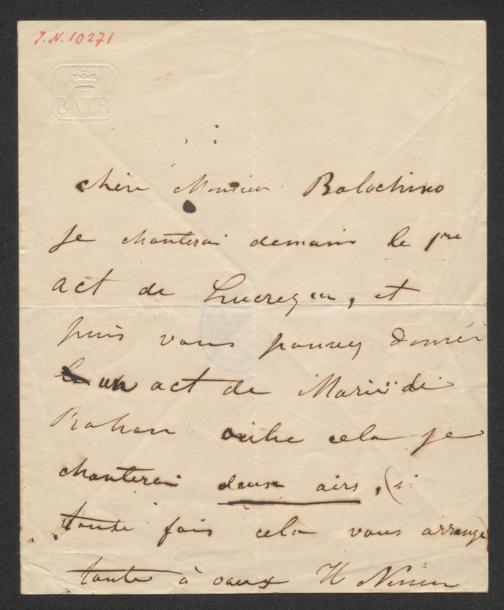 I.N. 10271
BATH
chère Monsieur Balochino
Je chanterai demain le 1re
act de Lucrezia, et
puis vous pouvez donner
un act de Maria di
Rohan outre cela je
chanterai deux airs, (si
toute fois cela vous arrange
toute à vous H Nissen